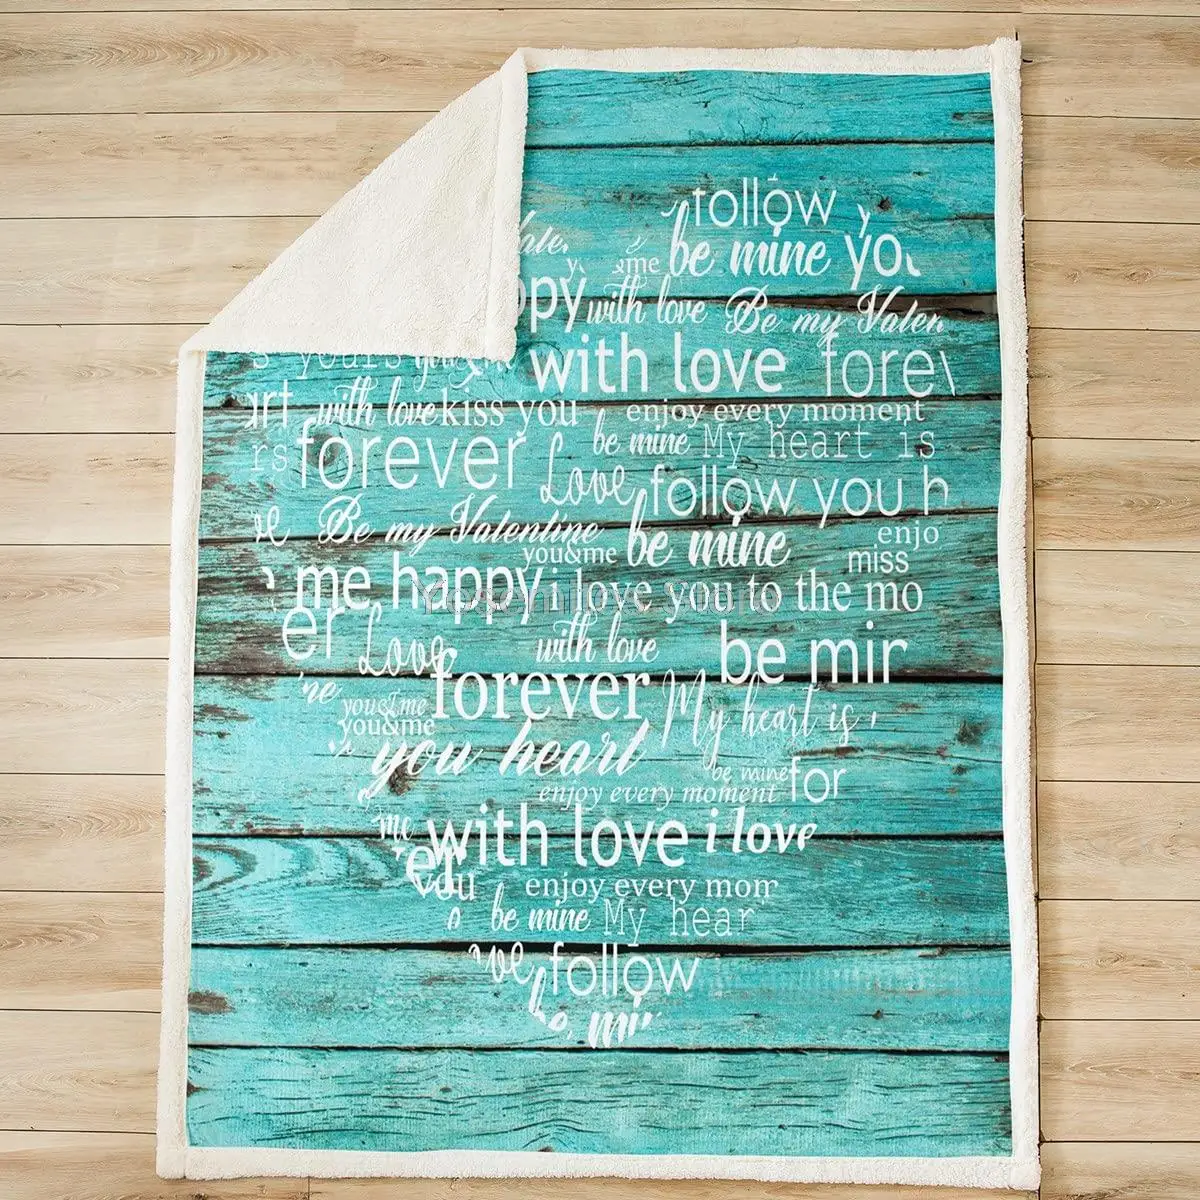 follow y
me be mine you
ppy with love Be my Valen
s yours you&me with love forev
art with love kiss you enjoy every moment
rs forever be mine My heart is
Love follow you h
ve Be my Valentine enjo
you&me be mine miss
me happy i love you to the mo
er Love with love be min
forever My heart is
you&me
you&me
you heart
be mine for
enjoy every moment
me with love i love
er
you enjoy every mom
be mine My hear
ove follow
be min